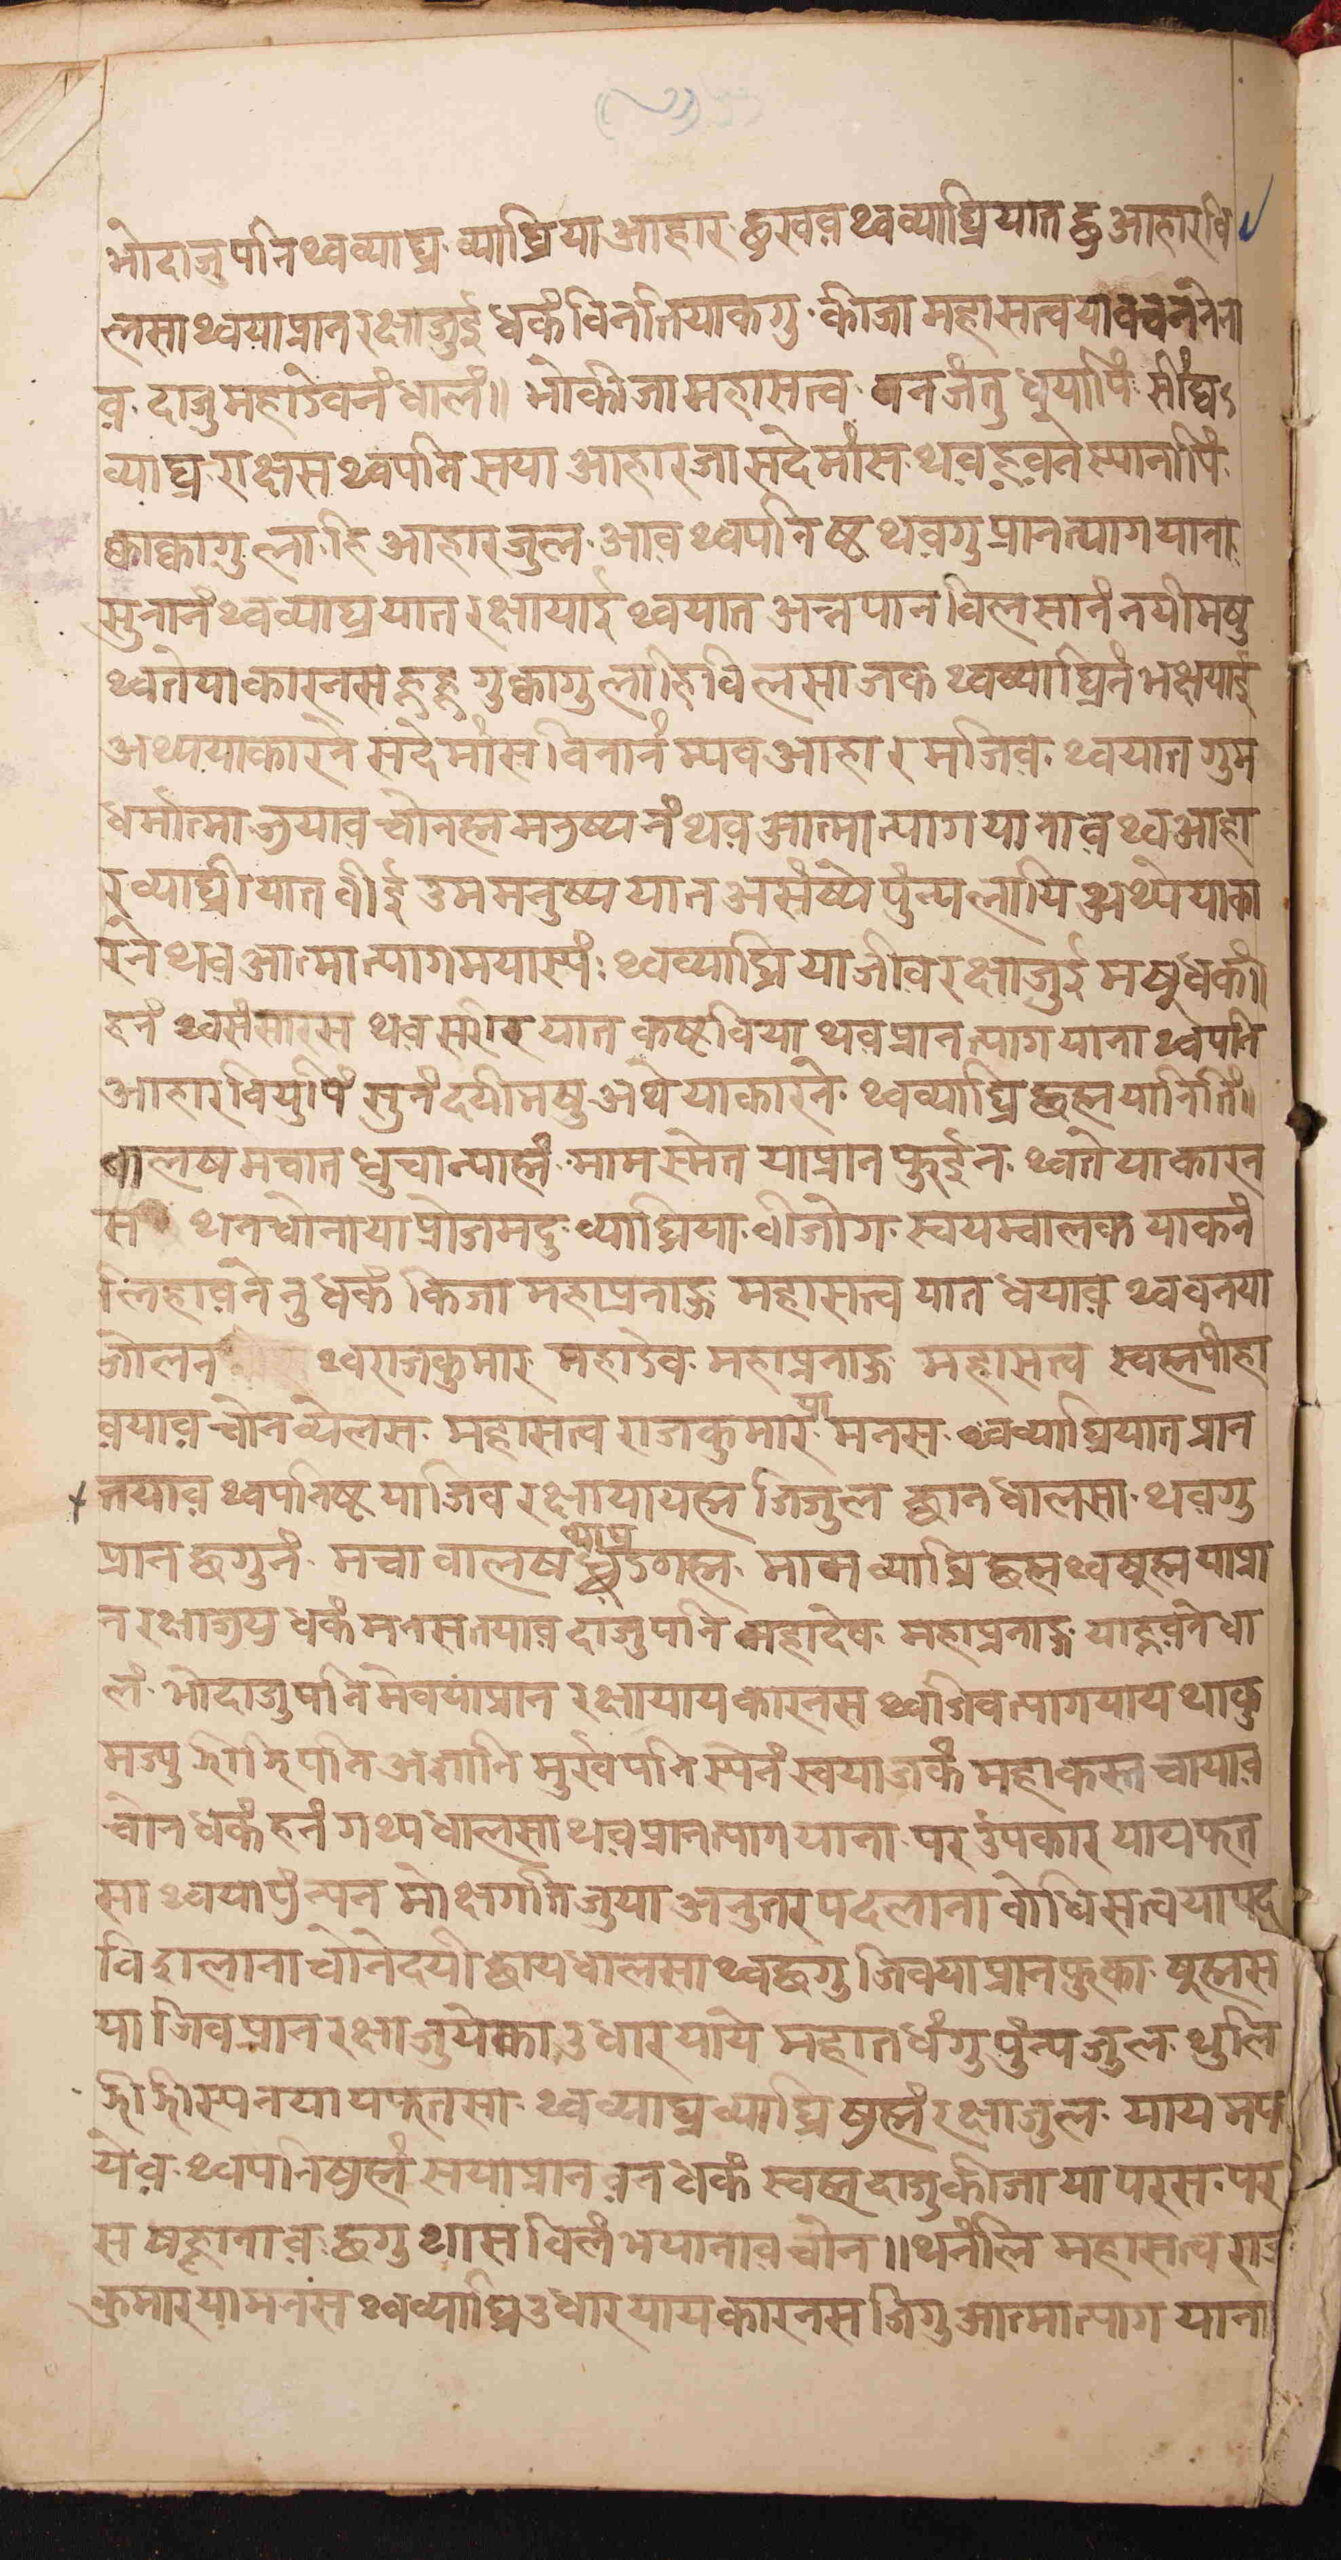 भोदाजुपनिथ्वव्याघ्र व्याघ्रिया आहार छुखव थ्वव्याघ्रियात छु आहारवि
लसा थ्वयाप्रान रक्षाजुई धकं विनतियाकगु कीजा महासत्वयावचननेना
व दाजुमहादेवनं धालं॥ भोकीजा महासत्व वनजंतु धयापिं सींघ
व्याघ्र राक्षस थ्वपनिसया आहार जा सदेमांस थवह्नवने स्यानापिं
क्वाक्वागु लाहि आहार जुल आव थ्वपनिष्ट थवगु प्रानत्यागयाना
सुनानं थ्वव्याघ्रयात रक्षायाई थ्वयात अन्नपानविलसानं नयीमषु
थ्वतेयाकारनस ह्नह्नगु क्वागु लाहि विलसाजक थ्वव्याघ्रिनं भक्षयाई
अथ्ययाकारने सदेमांस विनानं म्यव आहार मजिव थ्वयात गुम
धर्मात्मा जुयावचोनह्म मनुष्यनं थवआत्मात्यागयानाव थ्वआहा
रव्याघ्रीयात वीई उममनुष्ययात असंष्ये पुंन्यलायि अथ्येयाका
रने थवआत्मात्यागमयास्यं थ्वव्याघ्रियाजीवरक्षाजुई मषुधकं॥
हनं थ्वसंसारस थवसरिरयात कष्टविया थवप्रानत्यागयाना थ्वपनि
आहारवियुपिं सुनंदयीमषु अथेयाकारने थ्वव्याघ्रि छह्मयानितिं॥
वालषमचात धुचान्याह्मं मामस्मेत याप्रान फुईन थ्वतेयाकारन
स थनचोनायाप्रोजमदु व्याघ्रिया वीजोग स्वयम्वालक याकनं
लिहावनेनु धकं किजा महाप्रनाद महासत्वयात धयाव थ्ववनया
जोलन थ्वराजकुमार महादेव महाप्रनाद महासत्व स्वह्मपीहा
वयावचोनव्येलस महासत्व राजकुमारया मनस थ्वव्याघ्रियात प्रान
तयाव थ्वपनिष्ट याजिव रक्षायायह्म जिजुल छानधालसा थवगु
प्रानछगुनं मचा वालष ङाह्म मामव्याघ्रि छह्म थ्वषुह्मयाप्रा
नरक्षाजुयु धकं मनसतयाव दाजुपनि महादेव महाप्रनाद याह्नवनेधा
लं भोदाजुपनि मेवयाप्रान रक्षायायकारनस थ्वजिवत्यागयाय थाकु
मज्यु झिझिपनि अज्ञानि मुर्खपनिस्येनं स्वयाजकं महाकस्त चायाव
चोनधकं हनं गथ्यधालसा थवप्रानत्यागयाना परउपकार यायफत
सा थ्वयापुंन्यन मोक्षगति जुया अनुतरपदलाना वोधिसत्वयापद
विङालाना चोनेदयी छायधालसा थ्वछगु जिवयाप्रानफुका षुह्मस
याजिवप्रान रक्षाजुयेका उधारयाये महातधंगु पुंन्य जुल थुलि
झिझिस्यनयायफतसा थ्वव्याघ्रव्याघ्रि षुह्मं रक्षाजुल यायमफ
येव थ्वपनिषुह्मं सयाप्रानवन धकं स्वह्म दाजुकीजाया परस पर
स षह्लानाव छगु थास विलंभयानावचोन॥ थनंलि महासत्व राज
कुमारयामनस थ्वव्याघ्रिउधारयायकारनस जिगुआत्मात्याग याना